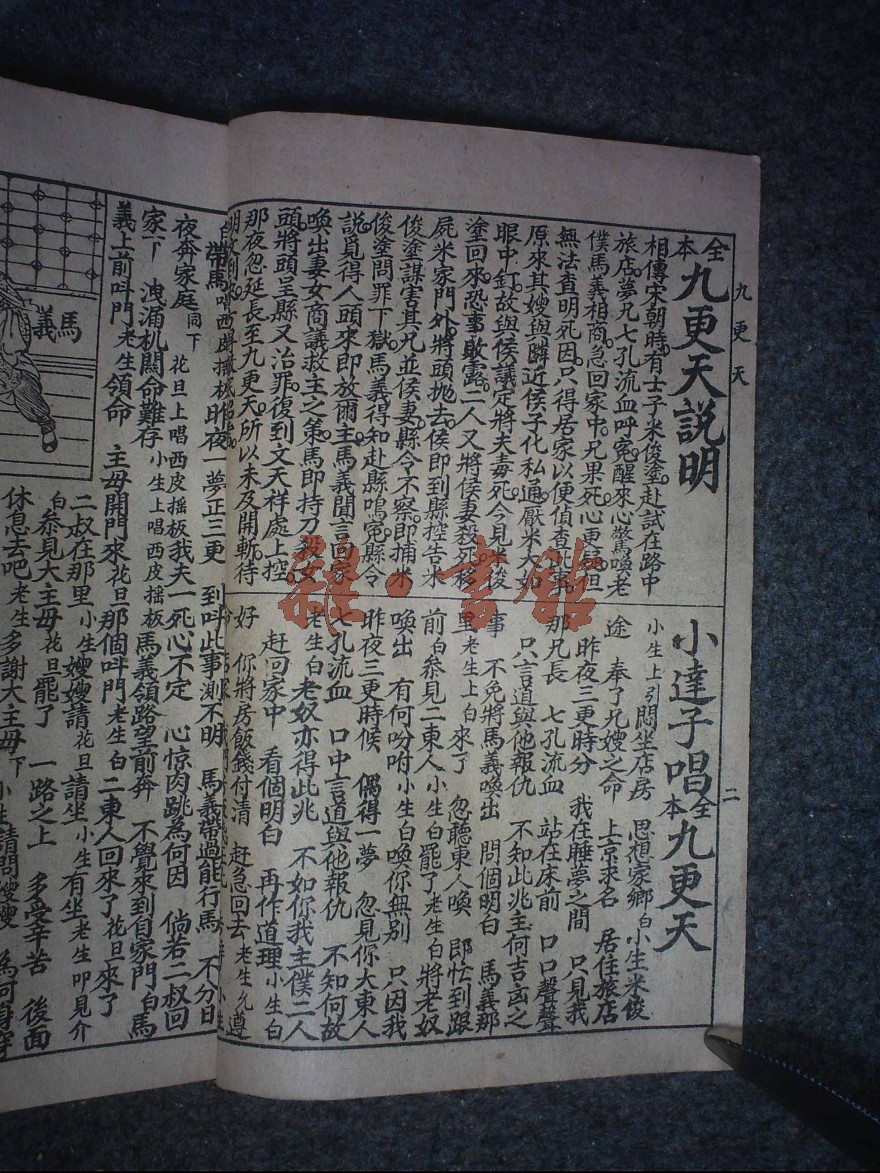 九更天
二
全本九更天説明
相傳宋朝時有士子米俊塗赴試在路中
旅店夢兄七孔流血呼冤醒來心驚喚老
僕馬義相商急回家中兄果死心更疑但
無法查明死因只得居家以便偵查此事
原來其嫂與隣近侯子化私通厭米大如
眼中釘故與侯議定將夫毒死今見米俊
塗回來恐事敗露二人又將侯妻殺死移
屍米家門外將頭抛去侯即到縣控告米
俊塗謀害其兄並侯妻縣令不察即捕米
俊塗問罪下獄馬義得知赴縣鳴冤縣令
説覓得人頭來即放爾主馬義聞言回家
喚出妻女商議救主之策馬即持刀殺女
頭將頭呈縣又治罪復到文天祥處上控
那夜忽延長至九更天所以未及開斬待
小達子唱全本九更天
小生上引悶坐店房 思想家鄉白小生米俊
途 奉了兄嫂之命 上京求名 居住旅店
昨夜三更時分 我在睡夢之間 只見我
那兄長 七孔流血 站在床前 口口聲聲
只言道與他報仇 不知此兆主何吉凶之
事 不免將馬義喚出 問個明白 馬義那
里老生上白來了 忽聽東人喚 即忙到跟
前白叅見二東人小生白罷了老生白將老奴
喚出 有何吩咐小生白喚你無别 只因我
昨夜三更時候 偶得一夢 忽見你大東人
七孔流血 口中言道與他報仇 不知何故
老生白老奴亦得此兆 不如你我主僕二人
赶回家中 看個明白 再作道理小生白
好 你將房飯錢付清 赶急回去老生允遵
帶馬唱西皮摇板昨夜一夢正三更 到呌此事測不明 馬義帶過能行馬 不分日
夜奔家庭同下 花旦上唱西皮摇板我夫一死心不定 心惊肉跳為何因 倘若二叔回
家下 洩漏机関命難存 小生上唱西皮摇板馬義領路望前奔 不覺來到自家門白馬
義上前呌門老生領命 主母開門來花旦那個呌門老生白二東人回來了花旦來了
二叔在那里小生嫂嫂請花旦請坐小生有坐老生叩見介
白叅見大主母花旦罷了 一路之上 多受辛苦 後面
休息去吧老生多謝大主母下 小生請問嫂嫂 為何身穿
馬義
雜·書館